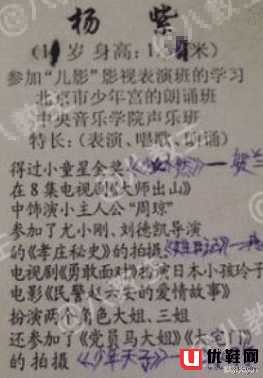 杨 紫
岁 身高:1.5 米)
参加“儿影”影视表演班的学习
北京市少年宫的朗诵班
中央音乐学院声乐班
特长:(表演、唱歌、朗诵)
得过小童星金奖、
在8集电视剧《大师出山》
中饰演小主人公“周琼”
参加了尤小刚、刘德凯导演
的《孝庄秘史》的拍摄、
电视剧《勇敢面对》扮演日本小孩玲子
电影《民警赵六安的爱情故事》
扮演两个角色大姐、三姐
还参加了《党员马大姐》《大宅门》
的拍摄《少年天子》
优鞋网